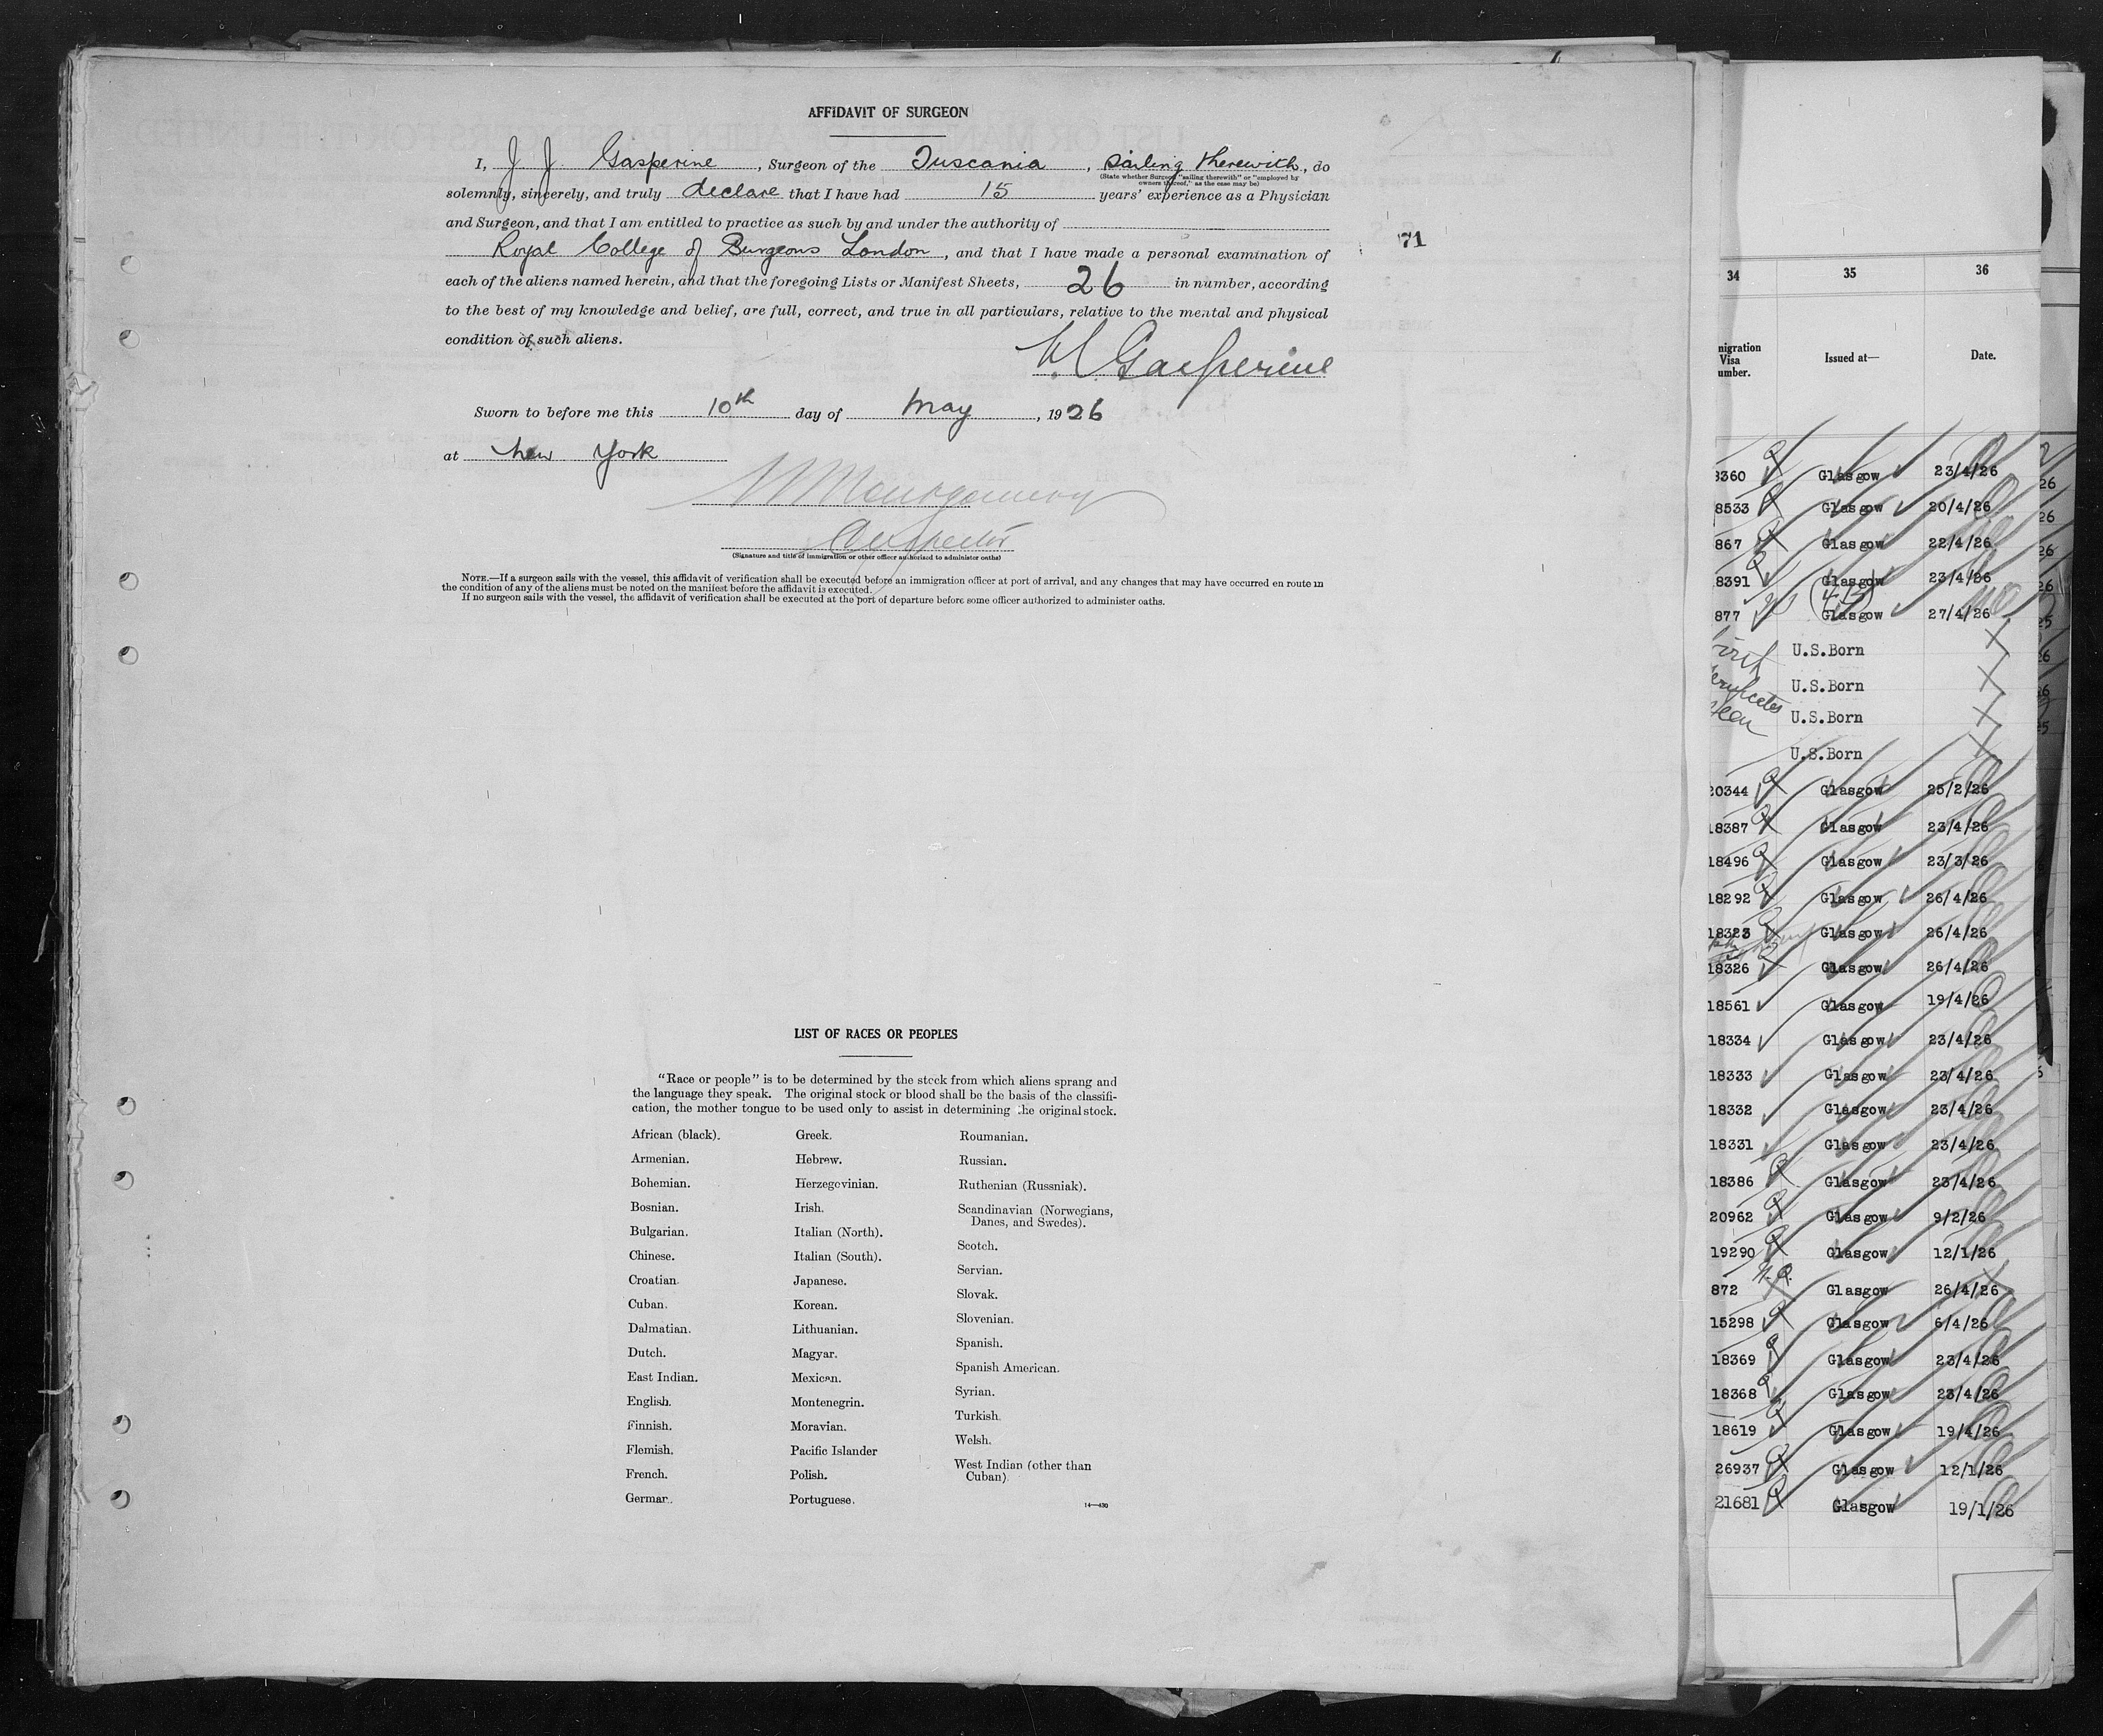 AFFIDAVIT OF SURGEON
I, J. J. Gasperine, Surgeon of the Tuscania, sailing therewith, do
(State whether Surgeon "sailing therewith" or "employed by
owners thereof," as the case may be)
solemnly, sincerely, and truly declare that I have had 15 years' experience as a Physician
and Surgeon, and that I am entitled to practice as such by and under the authority of
Royal College of Surgeons London, and that I have made a personal examination of
each of the aliens named herein, and that the foregoing Lists or Manifest Sheets, 26 in number, according
to the best of my knowledge and belief, are full, correct, and true in all particulars, relative to the mental and physical
condition of such aliens.
Gasperine
Sworn to before me this 10th day of May, 1926
at New York
Montgomery
Inspector
(Signature and title of immigration or other officer authorized to administer oaths)
NOTE.—If a surgeon sails with the vessel, this affidavit of verification shall be executed before an immigration officer at port of arrival, and any changes that may have occurred en route in
the condition of any of the aliens must be noted on the manifest before the affidavit is executed.
If no surgeon sails with the vessel, the affidavit of verification shall be executed at the port of departure before some officer authorized to administer oaths.
71
LIST OF RACES OR PEOPLES
"Race or people" is to be determined by the stock from which aliens sprang and
the language they speak. The original stock or blood shall be the basis of the classifi-
cation, the mother tongue to be used only to assist in determining the original stock.
African (black).
Armenian.
Bohemian.
Bosnian.
Bulgarian.
Chinese.
Croatian.
Cuban.
Dalmatian.
Dutch.
East Indian.
English.
Finnish.
Flemish.
French.
German.
Greek.
Hebrew.
Herzegovinian.
Irish.
Italian (North).
Italian (South).
Japanese.
Korean.
Lithuanian.
Magyar.
Mexican.
Montenegrin.
Moravian.
Pacific Islander
Polish.
Portuguese.
Roumanian.
Russian.
Ruthenian (Russniak).
Scandinavian (Norwegians,
Danes, and Swedes).
Scotch.
Servian.
Slovak.
Slovenian.
Spanish.
Spanish American.
Syrian.
Turkish.
Welsh.
West Indian (other than
Cuban).
14—430
34 35 36
nigration
Visa
umber.
Issued at—
Date.
8360 Glasgow 23/4/26
8533 Glasgow 20/4/26
867 Glasgow 22/4/26
8391 Glasgow 23/4/26
877 Glasgow 27/4/26
U.S.Born
U.S.Born
U.S.Born
U.S.Born
20344 Glasgow 25/2/26
18387 Glasgow 23/4/26
18496 Glasgow 23/3/26
18292 Glasgow 26/4/26
18323 Glasgow 26/4/26
18326 Glasgow 26/4/26
18561 Glasgow 19/4/26
18334 Glasgow 23/4/26
18333 Glasgow 23/4/26
18332 Glasgow 23/4/26
18331 Glasgow 23/4/26
18386 Glasgow 23/4/26
20962 Glasgow 9/2/26
19290 Glasgow 12/1/26
872 Glasgow 26/4/26
15298 Glasgow 6/4/26
18369 Glasgow 23/4/26
18368 Glasgow 23/4/26
18619 Glasgow 19/4/26
26937 Glasgow 12/1/26
21681 Glasgow 19/1/26